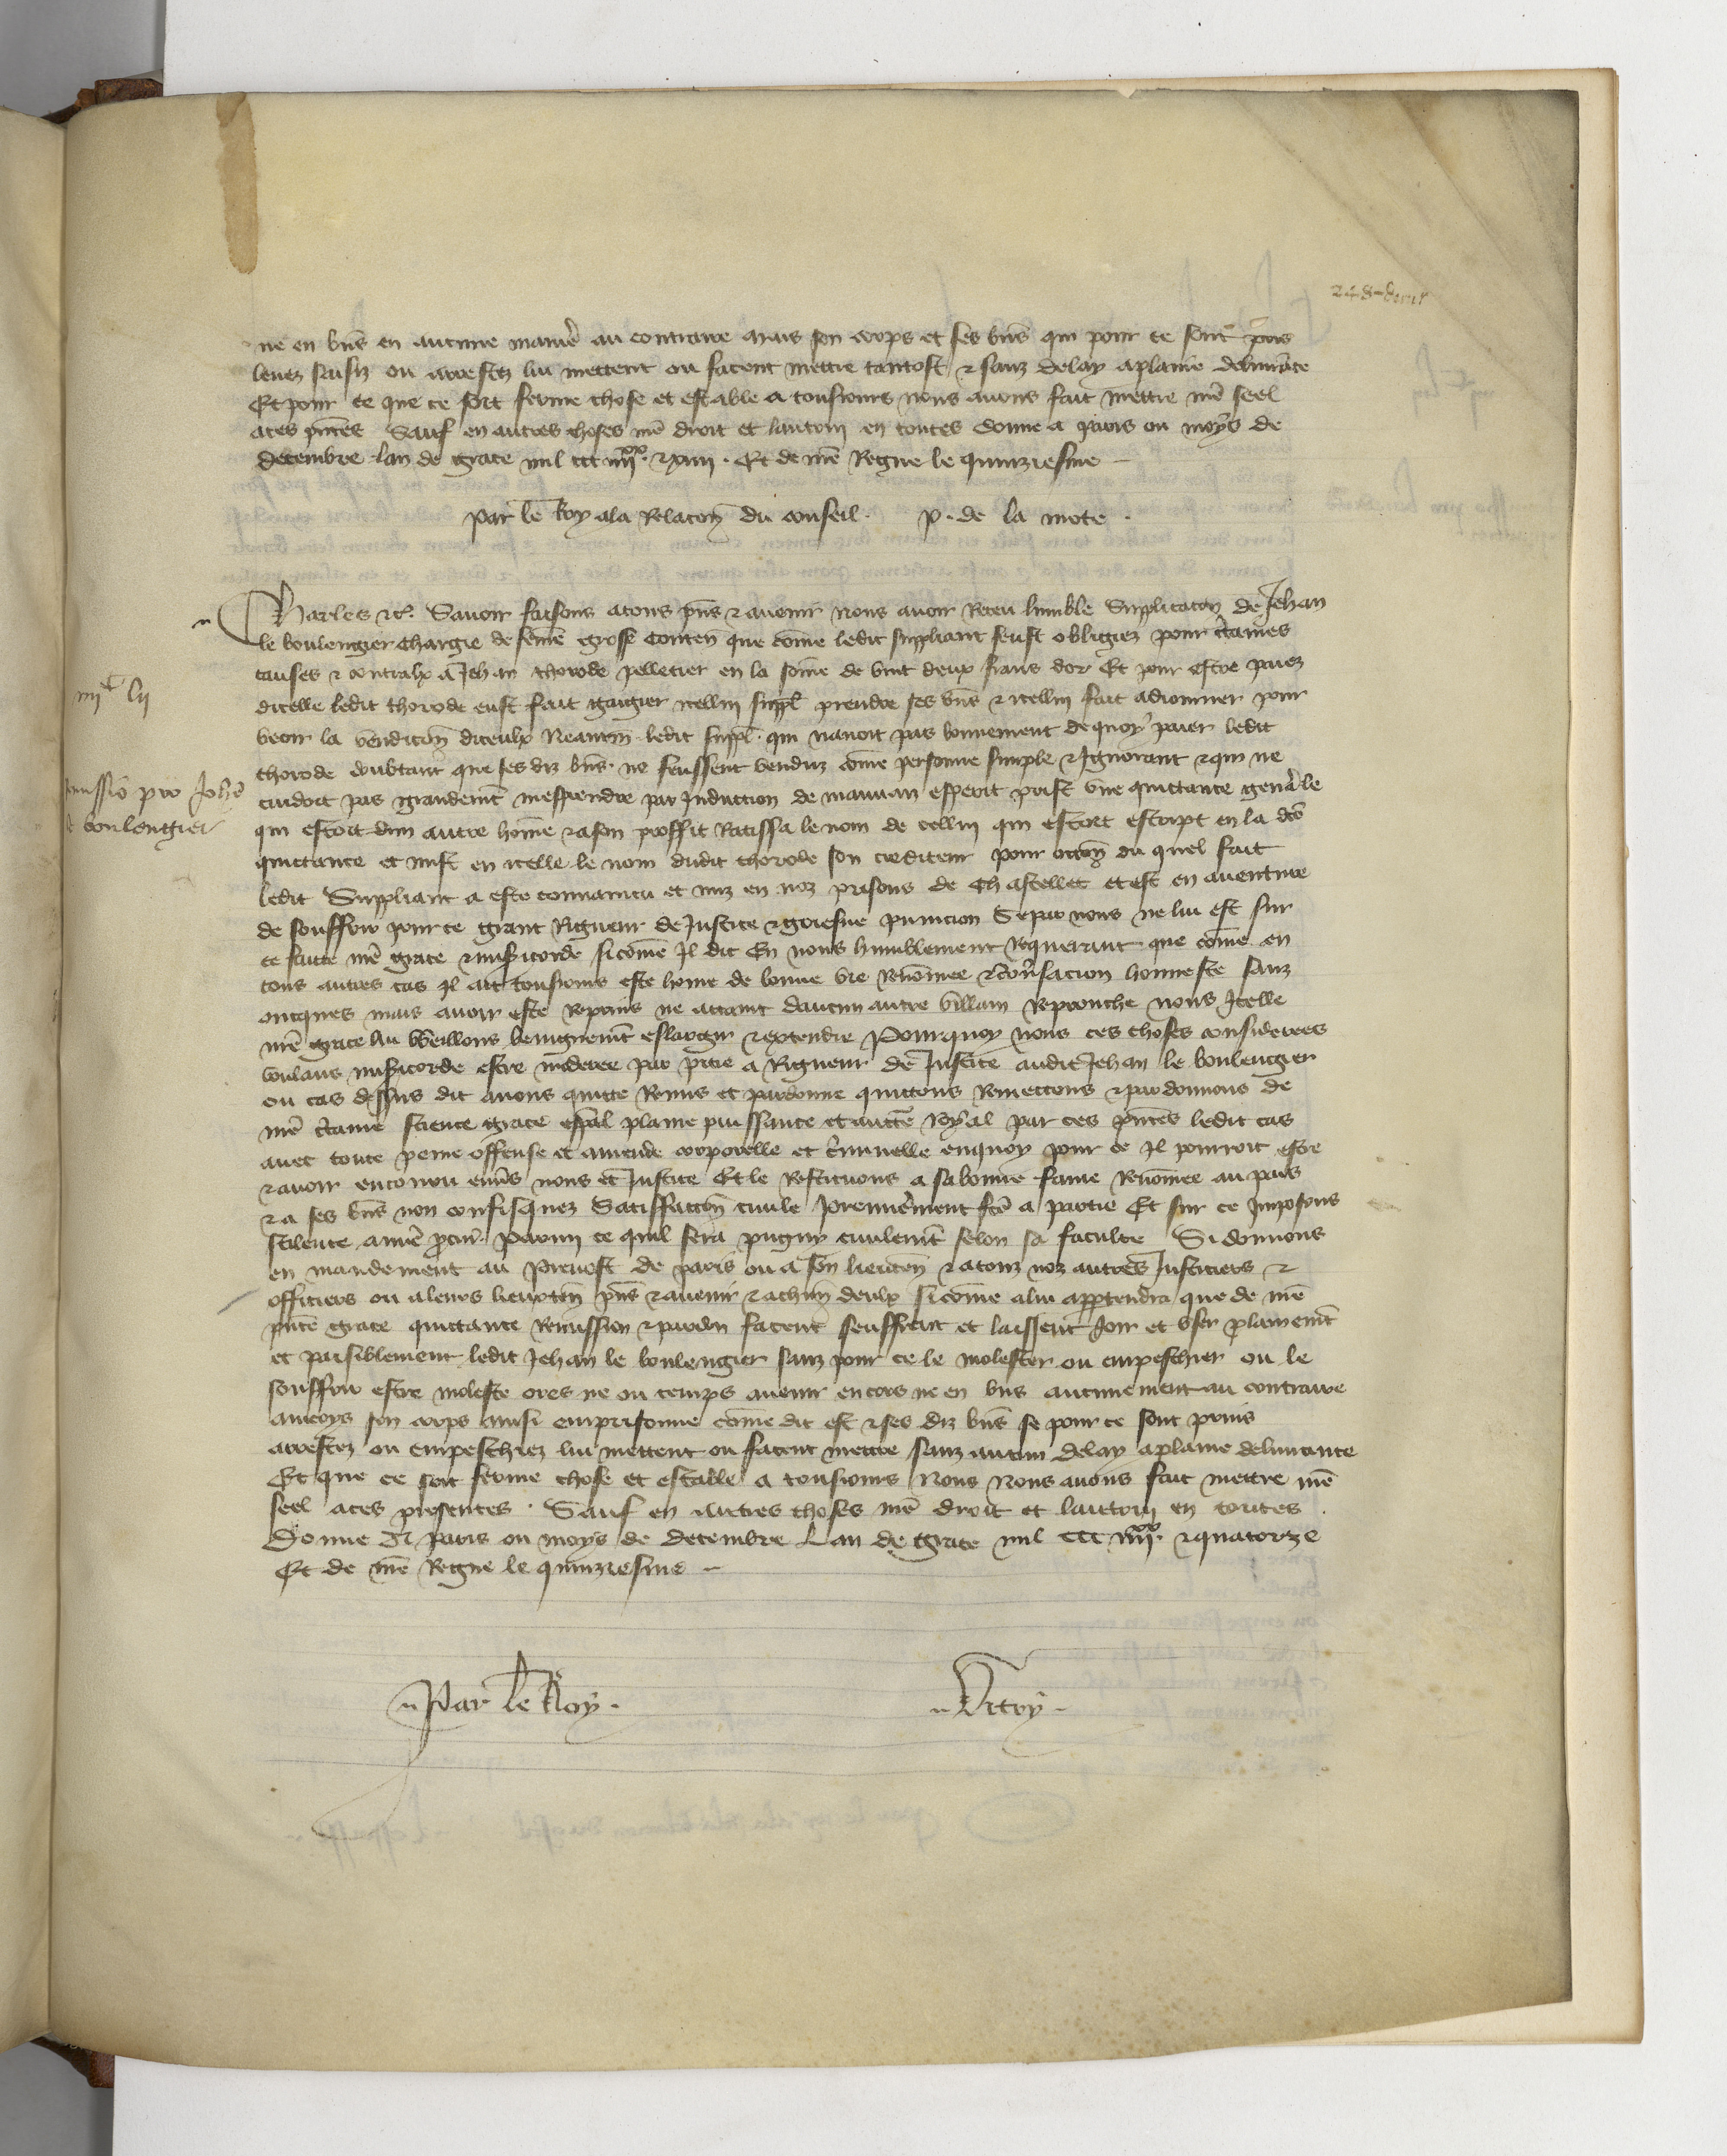 ne en bñs en aucune manie᷑ au contraire mais son corps et ses bñs qui pour ce sont prins
levez saisiz ou arrestez lui mettent ou facent mettre tantost ⁊ sanz delay a plaine delivrãce
Et pour ce que ce soit ferme chose et estable a tousiours nous avons fait mettre nr̃e seel
a ces p̃ntes Sauf en autres choses nr̃e droit et lautruy en toutes donne a paris ou moys de
decembre lan de grace mil ccc iiii^xx ⁊ xiiii . Et de nr̃e Regne le quinziesme
Par le Roy a la Relacõn du conseil . P . de la mote .
Charles ⁊c̃ . Savoir faisons a tous p̃ns ⁊ avenir nous avoir Receu lumble Supplicacõn de Jehan
le boulengier chargie de fẽme grosse conteñ que cõme ledit suppliant feust obligiez pour c̃taines
causes ⁊ contraulx a Jehan thorode pelletier en la sõme de vint deux frans dor Et pour estre paiez
dicelle ledit thorode eust fait gaigier icellui suppl̃ prendre ses bñs ⁊ icellui fait adiourner pour
veoir la vendicõn diceulx Neantm̃ ledit suppl̃ . qui navoit pas bonnement de quoy paier ledit
thorode doubtant que ses diz bñs . ne feussent venduz cõme personne simple ⁊ Ignorant ⁊ qui ne
cuidoit pas grandemt̃ mesprendre par Induction de mauvais esperit prist une quittance gen̾ale
qui estoit dun autre hõme ⁊ a son proffit Ratissa le nom de cellui qui estoit escript en la dc̃e
quittance et mist en icelle le nom dudit thorode son crediteur pour occõn du quel fait
ledit Suppliant a este convaincu et mis en noz prisons de Chastellet et est en aventure
de souffrir pour ce grant Rigueur de Justice ⁊ griesve punicion Se par nous ne lui est sur
ce faicte nr̃e grace ⁊ miscorde si cõme Il dit En nous humblement Requerant que cõme en
tous autres cas Il ait tousiours este home de bonne vie Renõmee ⁊ cõv̾sacion honneste sanz
oncques mais avoir este Reprins ne attaint daucun autre villain Reprouche nous Icelle
nr̃e grace lui vueillons benignemt̃ eslargir ⁊ extendre Pourquoy nous ces choses considerees
voulans miscorde estre moderee par pitie a Rigueur de Justice audit Jehan le boulengier
ou cas dessus dit avons quitte Remis et pardonne quittons Remettons ⁊ pardonnons de
nr̃e c̃taine science grace esp̃al plaine puissance et auct̃e Royal par ces p̃ntes ledit cas
avec toute peine offense et amende corporelle et c̃iminelle en quoy pour ce Il pourroit estre
⁊ avoir encouru env̾s nous et Justice Et le Restituons a sa bonne fame Renõmee au pais
⁊ a ses bñs non confisquez Satisffaccõn civile premiereent fc̃e a partie Et sur ce Imposons
scilence a nr̃e p̃cur̃ . Parmi ce quil sera pugny civilemt̃ selon sa faculte Si donnons
en mandement au prevost de paris ou a son lieuteñ ⁊ a touz noz autres Justiciers ⁊
officiers ou a leurs lieuxteñ p̃ns ⁊ avenir ⁊ a chũn deulx si cõme a lui appartendra que de nr̃e
p̃nte grace quittance Remission ⁊ pardon facent seuffrent et laissent Joir et user plainemt̃
et paisiblement ledit Jehan le boulengier sanz pour ce le molester ou empeschier ou le
souffrir estre moleste ores ne ou temps avenir en cors ne en bñs aucunement au contraire
aincoys son corps ainsi emprisonne cõme dit est ⁊ ses diz bñs se pour ce sont prins
arrestez ou empeschiez lui mettent ou facent mettre sanz aucun delay a plaine delivrance
Et que ce soit ferme chose et estable a tousiours Nous Nous avons fait mettre nr̃e
seel a ces presentes . Sauf en autres choses nr̃e droit et lautruy en toutes
Donne A Paris ou moys de decembre Lan de grace mil ccc iiii^xx . ⁊ quatorze
Et de nr̃e Regne le quinziesme
Par le Roy .
Vitry
iiii^c lii
Remissio pro Johẽ
le boulengier